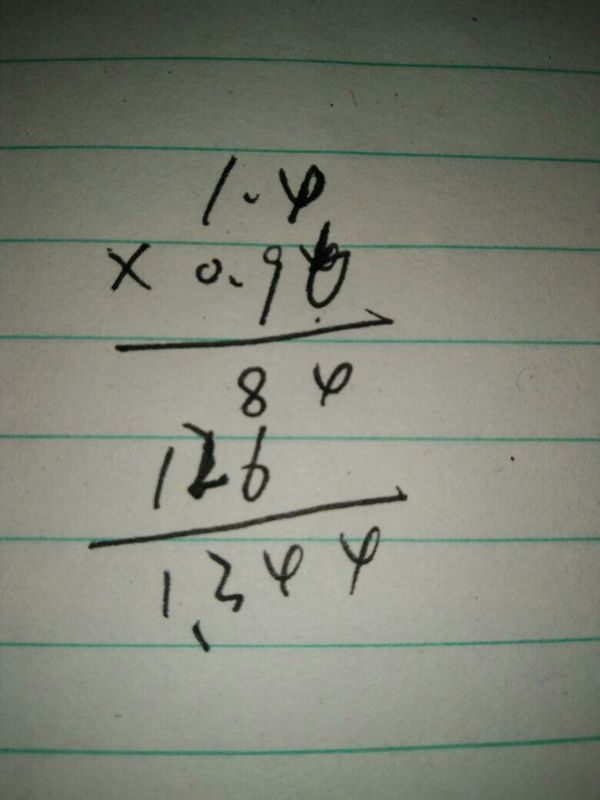 1.4
× 0.96
84
126
1.344